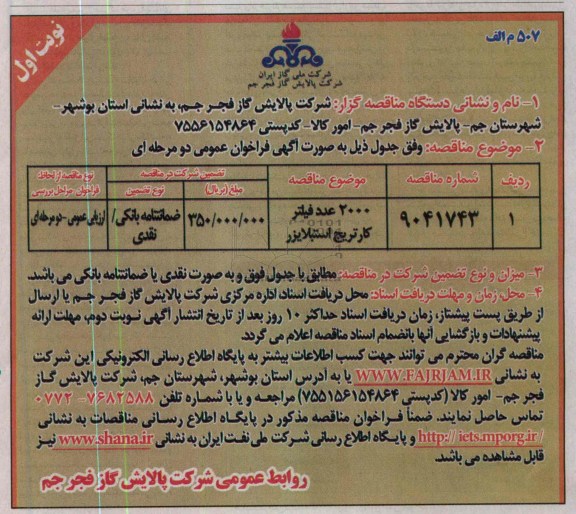 ۵۰۷ م الف
نوبت اول
شرکت ملی گاز ایران
شرکت پالایش گاز فجر جم
۱- نام و نشانی دستگاه مناقصه گزار: شرکت پالایش گاز فجـر جـم، به نشانی استان بوشهر-
شهرستان جم- پالایش گاز فجر جم- امور کالا- کدپستی ۷۵۵۶۱۵۴۸۶۴
۲- موضوع مناقصه: وفق جدول ذیل به صورت آگهی فراخوان عمومی دو مرحله ای
ردیف شماره مناقصه موضوع مناقصه تضمین شرکت در مناقصه نوع مناقصه از لحاظ
مبلغ (ریال) نوع تضمین فراخوان- مراحل بررسی
۱ ۹۰۴۱۷۴۳ ۲۰۰۰ عدد فیلتر کارتریج استبلایزر ۳۵۰/۰۰۰/۰۰۰ ضمانتنامه بانکی/ نقدی ارزیابی عمومی- دو مرحله ای
۳- میزان و نوع تضمین شرکت در مناقصه: مطابق با جدول فوق و به صورت نقدی یا ضمانتنامه بانکی می باشد.
۴- محل، زمان و مهلت دریافت اسناد: محل دریافت اسناد اداره مرکزی شرکت پالایش گاز فجـر جـم یا ارسال
از طریق پست پیشتاز، زمان دریافت اسناد حداکثر ۱۰ روز بعد از تاریخ انتشار آگهی نـوبت دوم، مهلت ارائه
پیشنهادات و بازگشایی آنها بانضمام اسناد مناقصه اعلام می گردد.
مناقصه گران محترم می توانند جهت کسب اطلاعات بیشتر به پایگاه اطلاع رسانی الکترونیکی این شرکت
به نشانی WWW.FAJRJAM.IR یا به آدرس استان بوشهر، شهرستان جم، شرکت پالایش گـاز
فجر جم- امور کالا (کدپستی ۷۵۵۱۵۶۱۵۴۸۶۴) مراجعـه و یا با شمـاره تلفن ۷۶۸۲۵۸۸-۰۷۷۲
تماس حاصل نمایند. ضمناً فـراخوان مناقصه مذکور در پایگـاه اطلاع رسـانی مناقصـات به نشانی
http://iets.mporg.ir/ و پایگاه اطلاع رسانی شرکت ملی نفت ایران به نشانی www.shana.ir نیـز
قابل مشاهده می باشد.
روابط عمومی شرکت پالایش گاز فجر جم